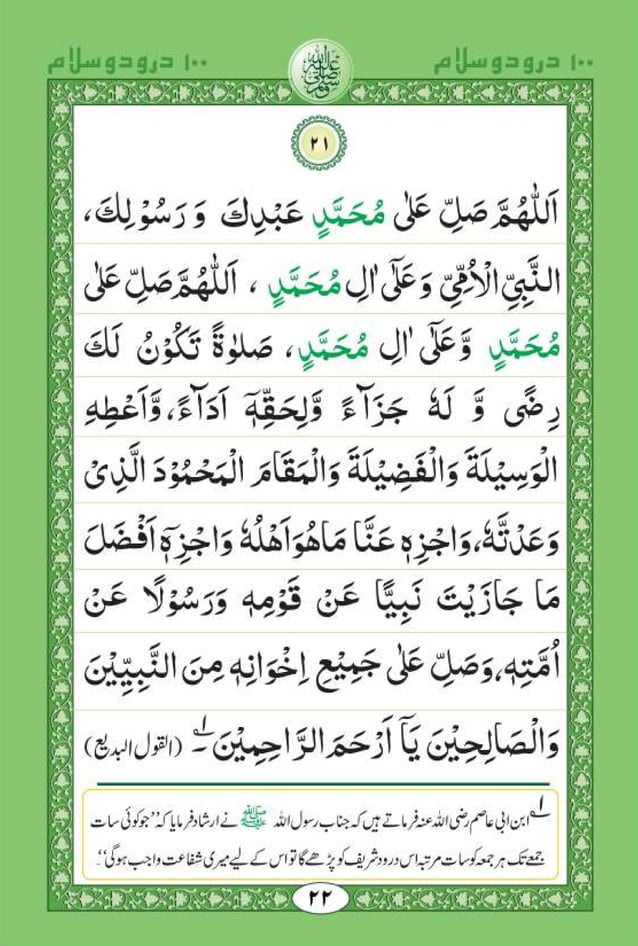 ۱۰۰ درود و سلام
۱۰۰ درود و سلام
صلی اللہ علیہ وسلم
۲۱
اَللّٰهُمَّ صَلِّ عَلٰى مُحَمَّدٍ عَبْدِكَ وَ رَسُوْلِكَ،
النَّبِيِّ الْاُمِّيِّ وَعَلٰٓى اٰلِ مُحَمَّدٍ ، اَللّٰهُمَّ صَلِّ عَلٰى
مُحَمَّدٍ وَّعَلٰٓى اٰلِ مُحَمَّدٍ، صَلٰوةً تَكُوْنُ لَكَ
رِضًى وَّ لَهٗ جَزَآءً وَّلِحَقِّهٖٓ اَدَآءً، وَّاَعْطِهِ
الْوَسِيْلَةَ وَالْفَضِيْلَةَ وَالْمَقَامَ الْمَحْمُوْدَ الَّذِىْ
وَعَدْتَّهٗ، وَاجْزِهٖ عَنَّا مَا هُوَ اَهْلُهٗ وَاجْزِهٖٓ اَفْضَلَ
مَا جَازَيْتَ نَبِيًّا عَنْ قَوْمِهٖ وَرَسُوْلًا عَنْ
اُمَّتِهٖ، وَصَلِّ عَلٰى جَمِيْعِ اِخْوَانِهٖ مِنَ النَّبِيِّيْنَ
وَالْصَالِحِيْنَ يَآ اَرْحَمَ الرَّاحِمِيْنَ ۔ ؂۱ (القول البدیع)
؂۱ ابن ابی عاصم رضی اللہ عنہ فرماتے ہیں کہ جناب رسول اللہ ﷺ نے ارشاد فرمایا کہ ”جو کوئی سات
جمعے تک ہر جمعہ کو سات مرتبہ اس درود شریف کو پڑھے گا تو اس کے لیے میری شفاعت واجب ہوگی“۔
۲۲